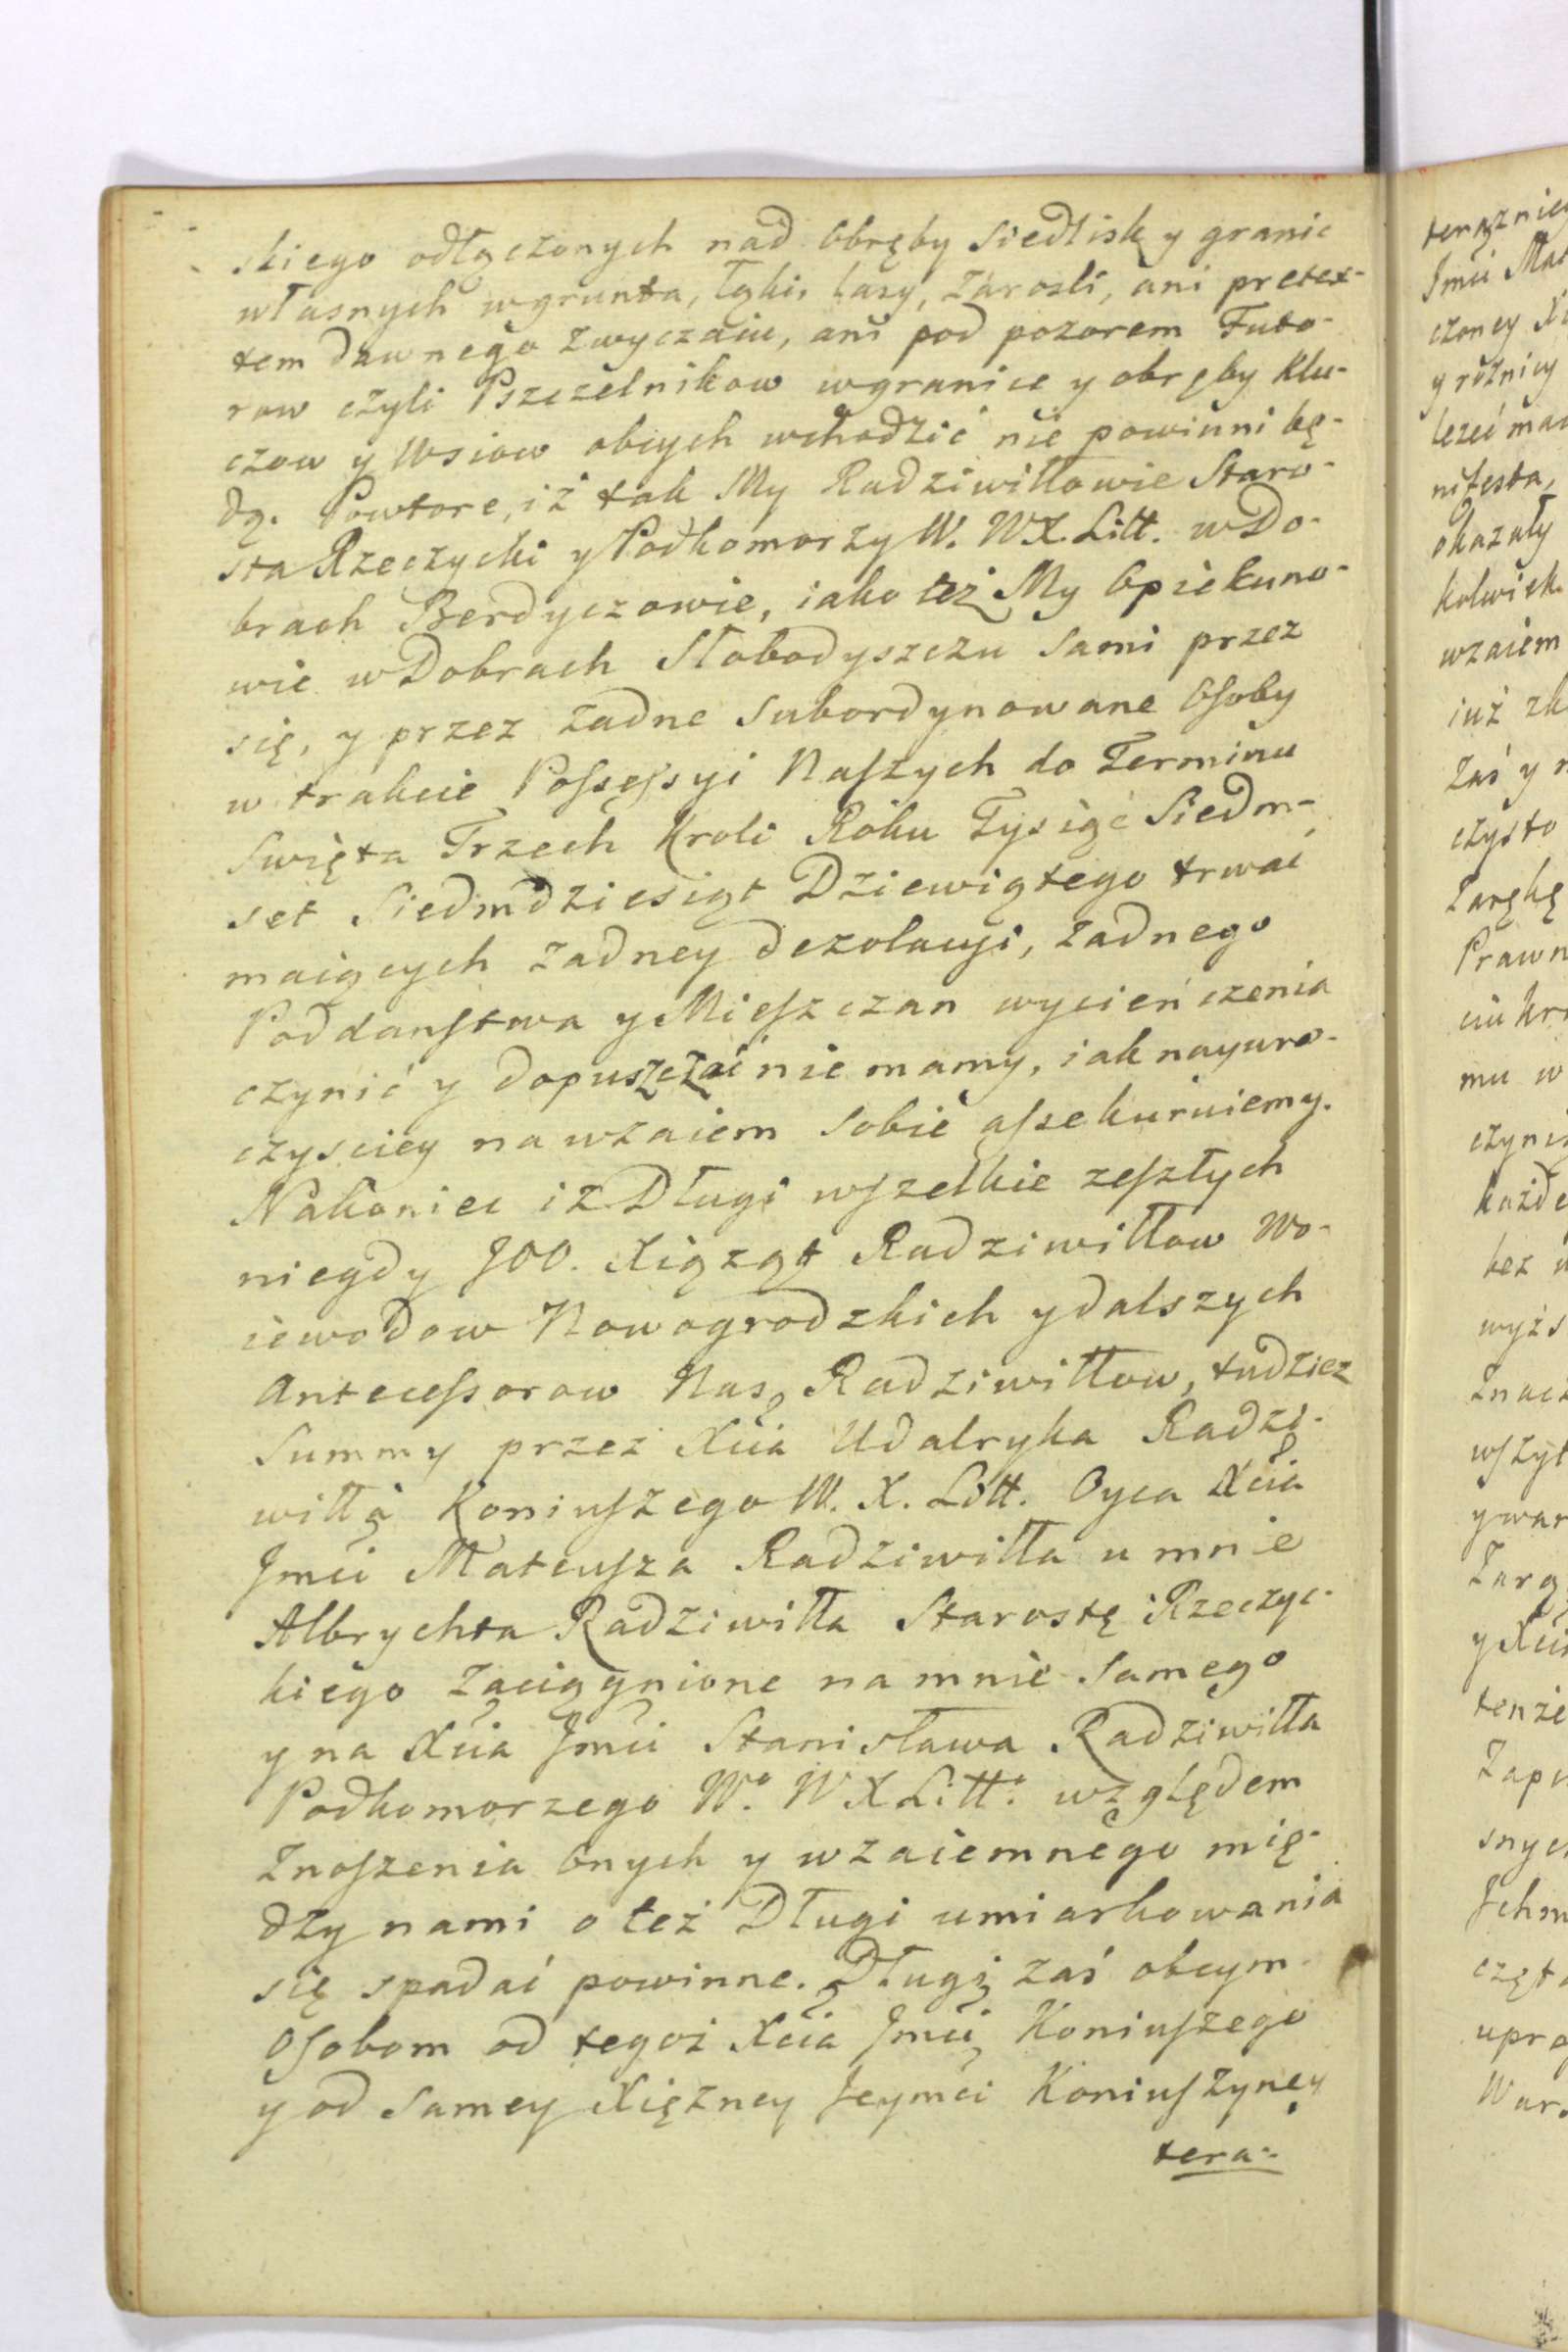 skiego odłączonych nad Obręby Siedlisk y granic
własnych w grunta, łąki, lasy, Zarosli, ani pretex-
tem dawnego Zwyczaiu, ani pod pozorem Futo-
row czyli Pszczelnikow w granice y obręby Klu-
czow y Wsiow obcych wchodzić nie powinni bę-
dą. Powtore, iż tak My Radziwiłłowie Staro-
sta Rzeczycki y Podkomorzy W. WX. Litt. w Do-
brach Berdyczowie, iako też My Opiekuno-
wie w Dobrach Słobodyszczu Sami przez
się, y przez żadne Subordynowane Osoby
w trakcie Possessyi Naszych do Terminu
Swięta Trzech Kroli Roku Tysiąc Siedm-
set Siedmdziesiąt Dziewiątego trwać
maiących żadney dezolacyi, żadnego
Poddanstwa y Mieszczan wycieńczenia
czynić y dopuszczać nie mamy, iak nayuro-
czysciey nawzaiem Sobie assekuruiemy.
Nakoniec iż Długi wszelkie zeszłych
niegdy JOO. Xiąząt Radziwiłłow Wo-
iewodow Nowogrodzkich y dalszych
Antecessorow Nas Radziwiłłow, tudziez
Summy przez Xcia Udalryka Radzi-
wiłła Koniuszego W. X. Litt. Oyca Xcia
Jmci Mateusza Radziwiłła u mnie
Albrychta Radziwiłła Starostę Rzeczyc-
kiego Zaciągnione na mnie Samego
y na Xcia Jmci Stanisława Radziwiłła
Podkomorzego Wº. WX Litt. względem
Znoszenia Onych y wzaiemnego mię-
dzy nami o też Długi umiarkowania
się spadać powinne. Długi zaś obcym
Osobom od tegoż Xcia Jmci Koniuszego
y od Samey Xiężney Jeymci Koniuszyney
tera-
terazniey
Jmci Mat
czoney X
y rożnicy
leżeć ma
nifesta,
okazały
kolwiek
wzaiem
iuż
Zaś y
czysto
Zarękę
Prawn
mu w
każde
bez
wyżs
tenże
Zap
snych
Jchm